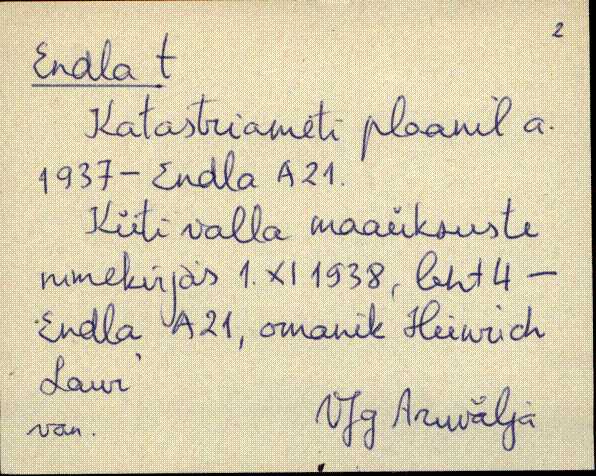 2
Endla t
Katastriameti plaanil a.
1937 – Endla A 21.
Küti valla maaüksuste
nimekirjas 1. XI 1938, leht 4 –
Endla A 21, omanik Heinrich
Lauri
van. VJg Aruvälja